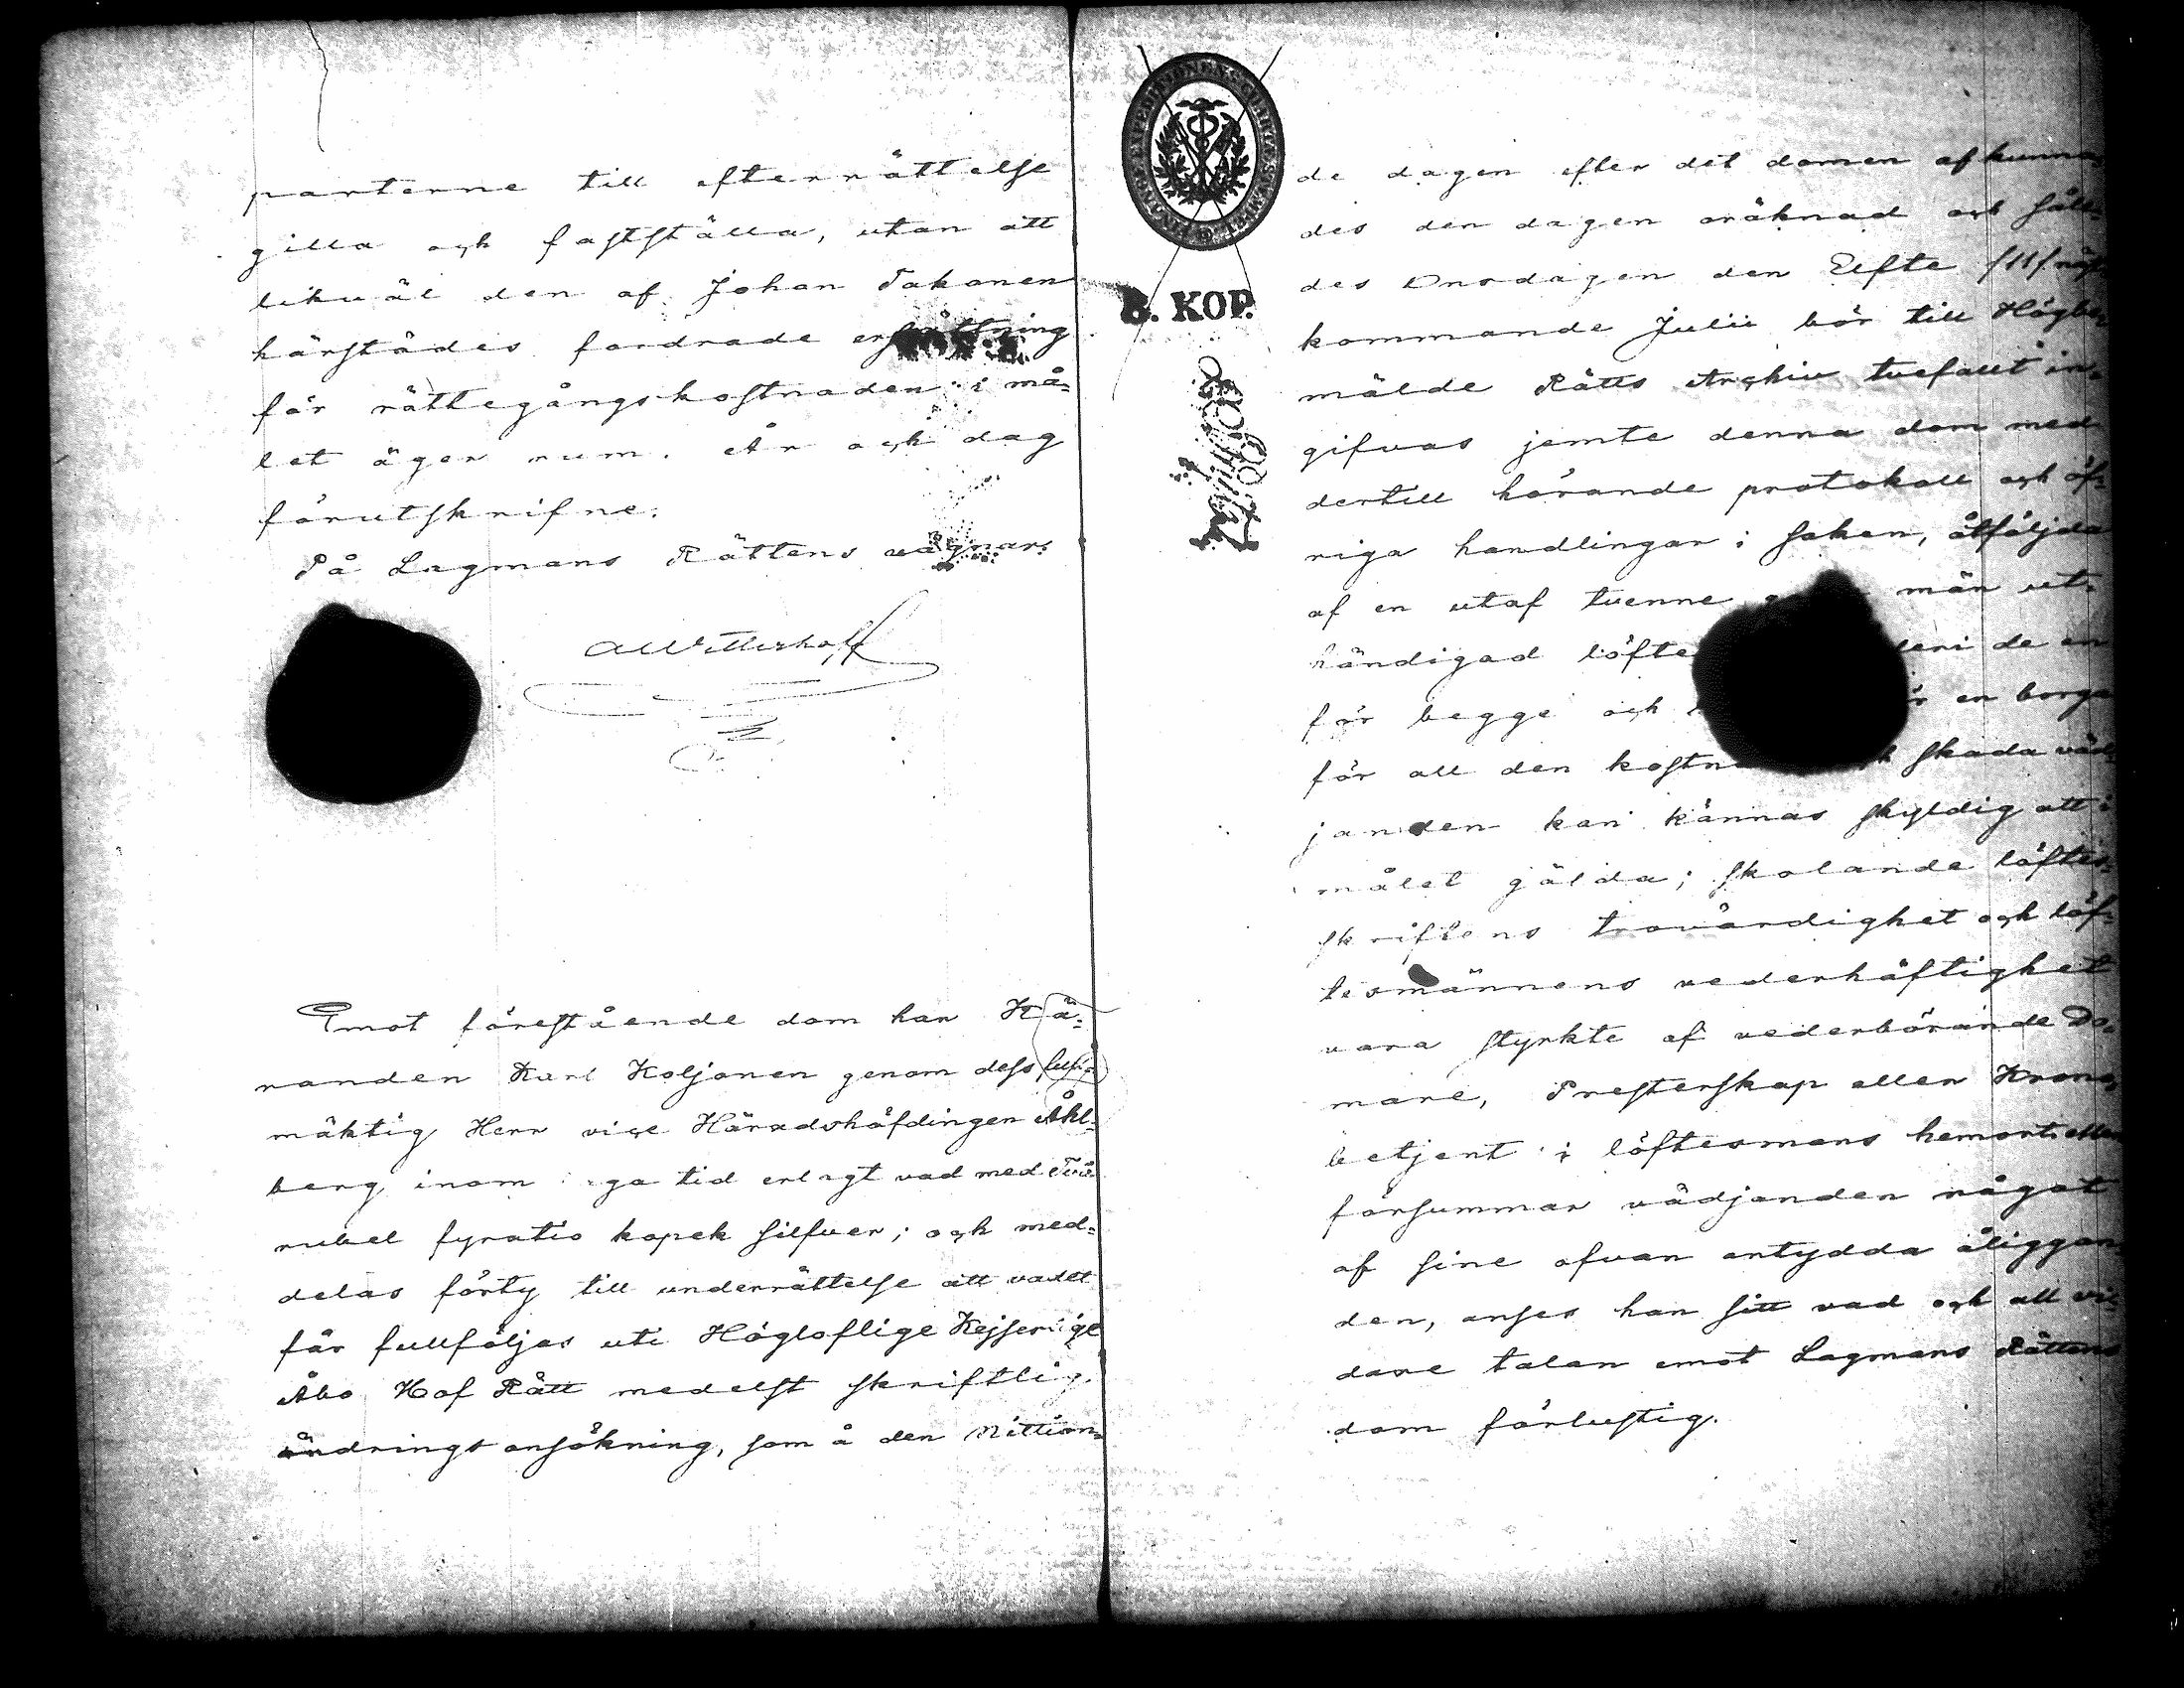 parterne till efterrättelse
gilla och fastställa, utan att
likväl den af Johan Takanen
härstädes fordrade ersättning
för rättegångskostnaden i må=
let äger rum. År och dag
förutskrifne.
På Lagmans Rättens vägnar:
AWetterhoff
Emot förestående dom har Kä=
randen Karl Koljonen genom dess full=
mäktig Herr vice Häradshöfdingen Åhl=
berg inom laga tid erlagt vad med Två
rubel fyratio kopek silfver; och med=
delas förty till underrättelse att vadet
får fullföljas uti Högloflige Kejserlige
Åbo Hof Rätt medelst skriftlig
ändringsansökning, som å den Nittion=
B. KOP.
de dagen efter det domen afkunna=
des den dagen oräknad och såle=
des Onsdagen den Elfte /11/ näst
kommande Julii bör till Högbe=
mälde Rätts Archiv tvefallt in=
gifvas jemte denna dom med
dertill hörande protokoll och öf=
riga handlingar i saken, åtföljda
af en utaf tvenne män ut=
händigad löfte deri de en
för begge och för en borga
för all den kostnad och skada väd=
janden kan kännas skyldig att i
målet gälda; skolande löftes=
skriftens trovärdighet och löf=
tesmännens vederhäftighet
vara styrkte af vederbörande Do=
mare, Presterskap eller Krono=
betjent i löftesmans hemort: eller
försummar vädjanden något
af sine ofvan antydda åliggan=
den, anses han sitt vad och all vi=
dare talan emot Lagmans Rättens
dom förlustig.